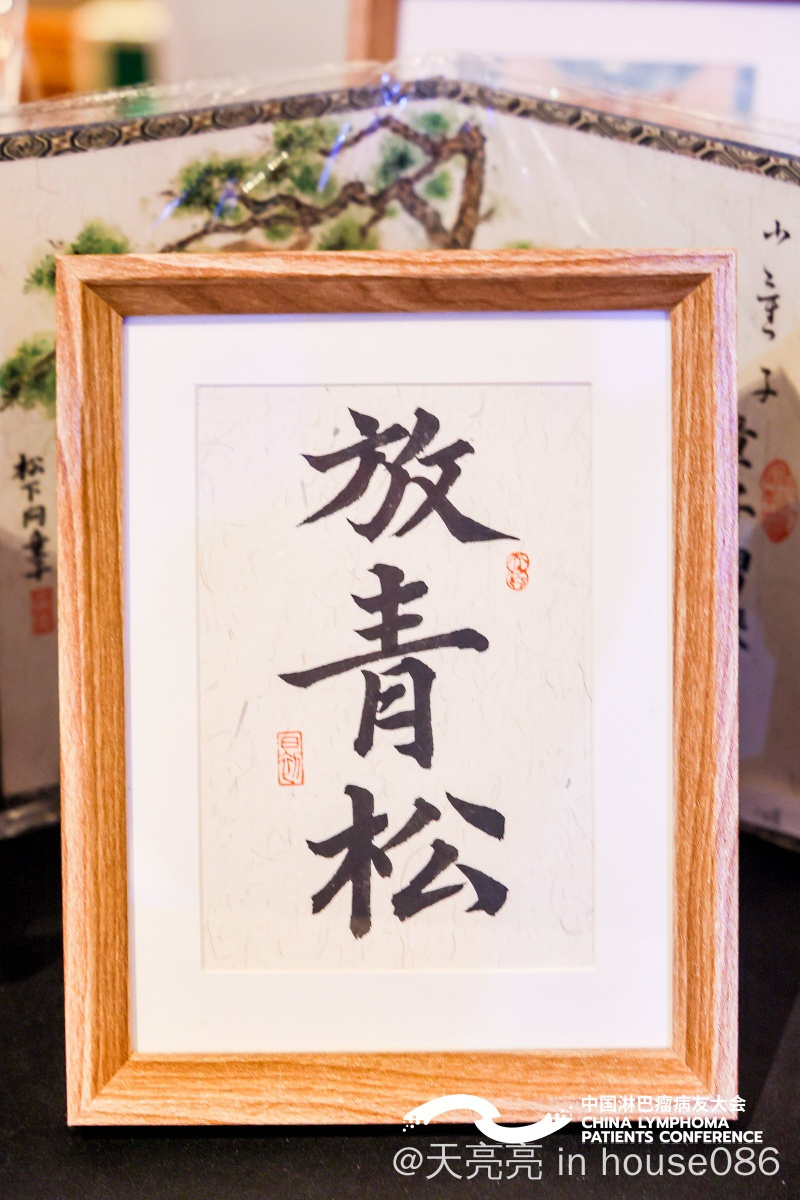 放青松
松下问童子
中国淋巴瘤病友大会
CHINA LYMPHOMA
PATIENTS CONFERENCE
@天亮亮 in house086